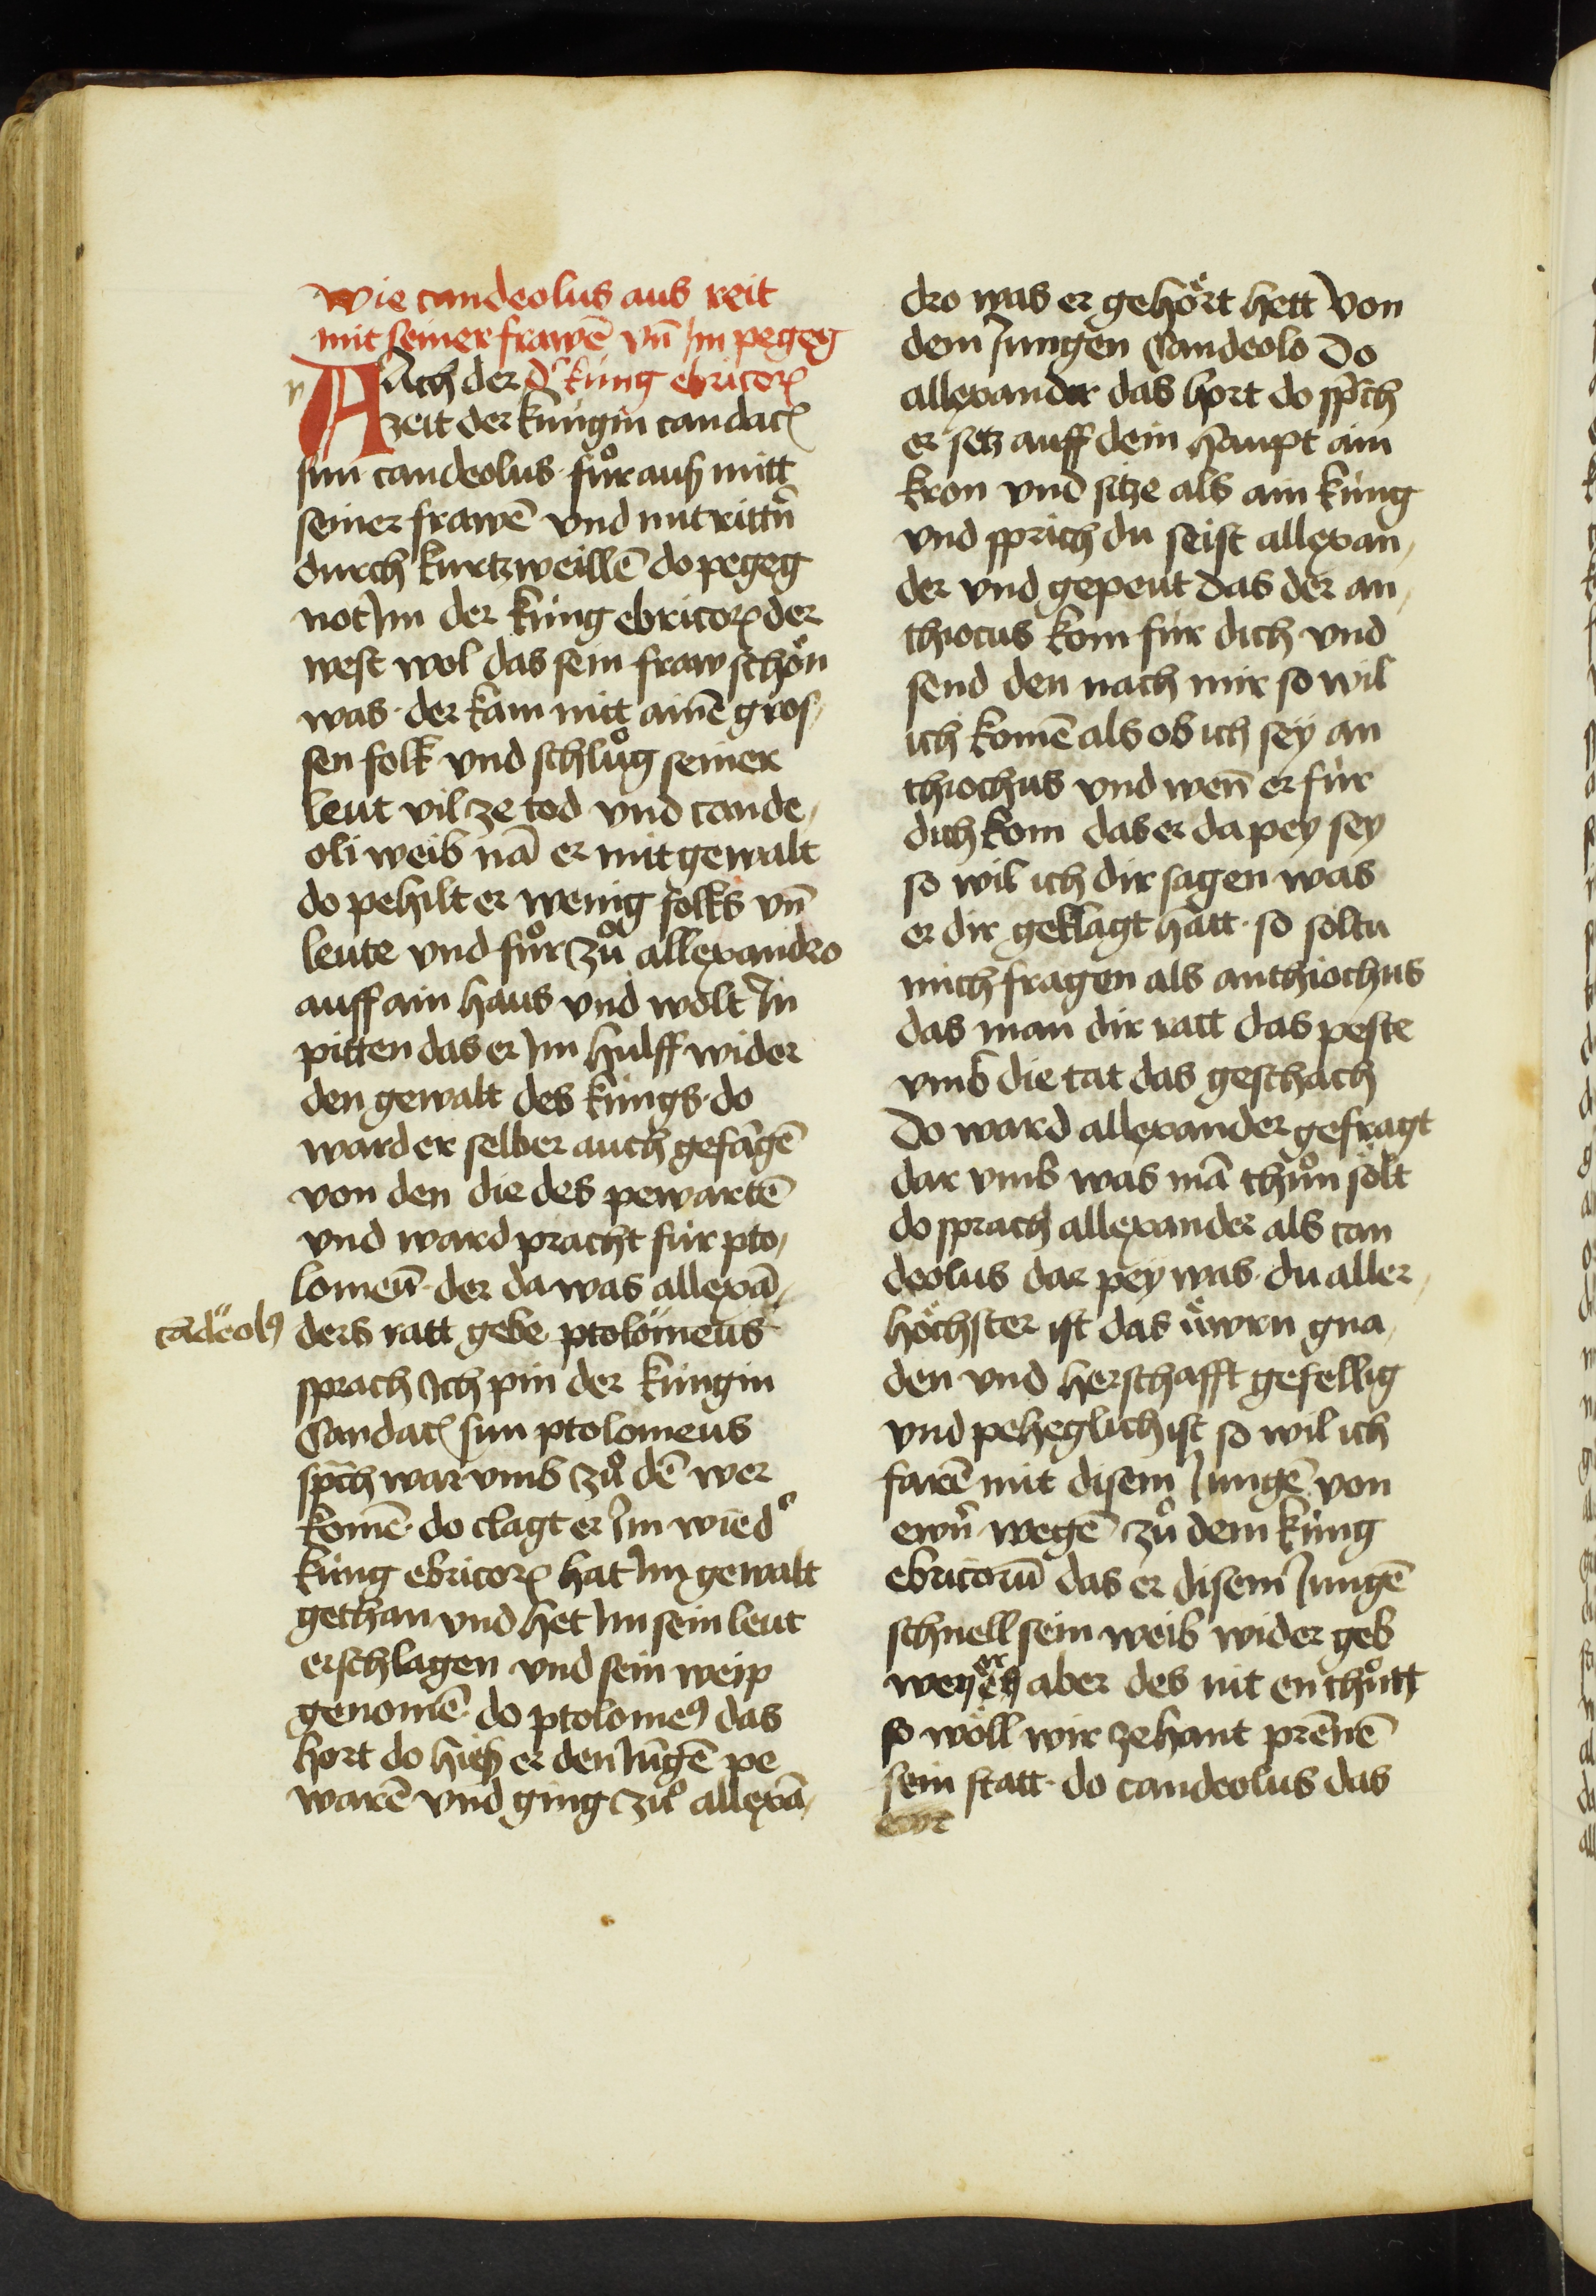 wie candeolus aus reit
mit seiner frawē vn̄ Im pegeg
Ach der d' kúng ebricorꝝ
zeit der kúngin candacꝭ
sun candeolus · fuͦr auß mitt
seiner frawē vnd mit rittn̄
durch kurtzweillē do pegeg
not Im der kúng ebricorꝝ der
west wol das sein fraw schoͤn
was · der kam mitt aīnē gros,
sen folk vnd schluͦg seiner
leut vil ze tod vnd cande,
oli weib nā er mit gewalt
do pehilt er wenig folks vn̄
leute vnd fuͦr zuͦ allexandro
auff ain haus vnd wolt In
pitten das er Im hulff wider
den gewalt des kúngs · do
ward er selber auch gefāgē
von den die des pewartē
vnd ward pracht fúr pto,
lomeū · der da was allexā,
cādeolꝰ
ders ratt gebe · ptolomeus
sprach Ich pin der kúngin
Candacꝭ sun ptolomeus
sp̄ch war vmb zuͦ dē wer
komē · do clagt er Im wie d'
kúng ebricorꝝ hat Im gewalt
gethan vnd het Im sein leut
erschlagen vnd sein weip
genomē · do ptolomeꝰ das
hort do hieß er den Iūgē pe
warē vnd ging zuͦ allexā,
dro was er gehoͤrt hett von
dem Iungen Candeolo Do
allexander das hort do sp̄ch
er setz auff dein haupt ain
kron vnd sitze als ain kúng
vnd sprich du seist allexan,
der vnd gepeut das der an,
thiocus kom fúr dich vnd
send den nach mir so wil
ich komē als ob ich sey an
thiochus vnd wen̄ er fúr
dich kom das er da pey sey
so wil ich dir sagen was
er dir geklagt hatt · so soltu
mich fragen als anthiochus
das man dir ratt das peste
vmb die tat das geschach
Do ward allexander gefragt
dar vmb was mā thuͦn solt
do sprach allexander als can
deolus dar pey was · du aller,
hoͤchster ist das uͤwrn gna,
den vnd herschafft gefellig
vnd peheglich ist so wil ich
farē mit disem Iungē von
ewrn̄ wegē zuͦ dem kúng
ebricorū das er disem Iungē
schnell sein weib wider geb
wen er aber des nit en thuͦtt
so woͤll wir ze hant prēnē
sein statt · do candeolus das